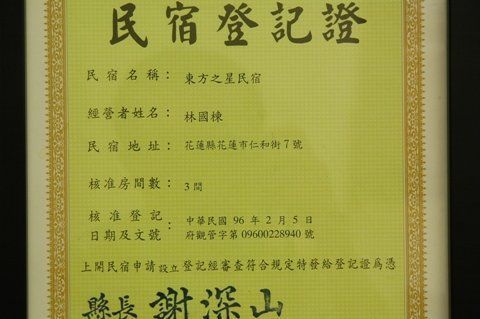 民宿登記證
民宿名稱：東方之星民宿
經營者姓名：林國棟
民宿地址：花蓮縣花蓮市仁和街7號
核准房間數：3間
核准登記 中華民國 96 年 2 月 5 日
日期及文號：府觀管字第 09600228940 號
上開民宿申請設立登記經審查符合規定特發給登記證為憑
縣長 謝深山